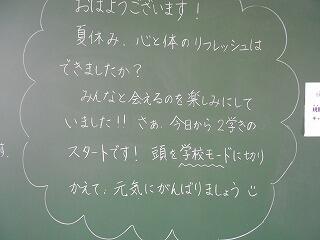 おはようございます!
夏休み、心と体のリフレッシュは
できましたか?
みんなと会えるのを楽しみにして
いました!! さぁ、今日から2学きの
スタートです! 頭を学校モードに切り
かえて、元気にがんばりましょう
す.